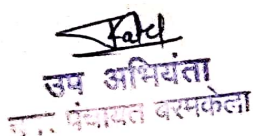 उप अभियंता
पंचायत बरमकेला